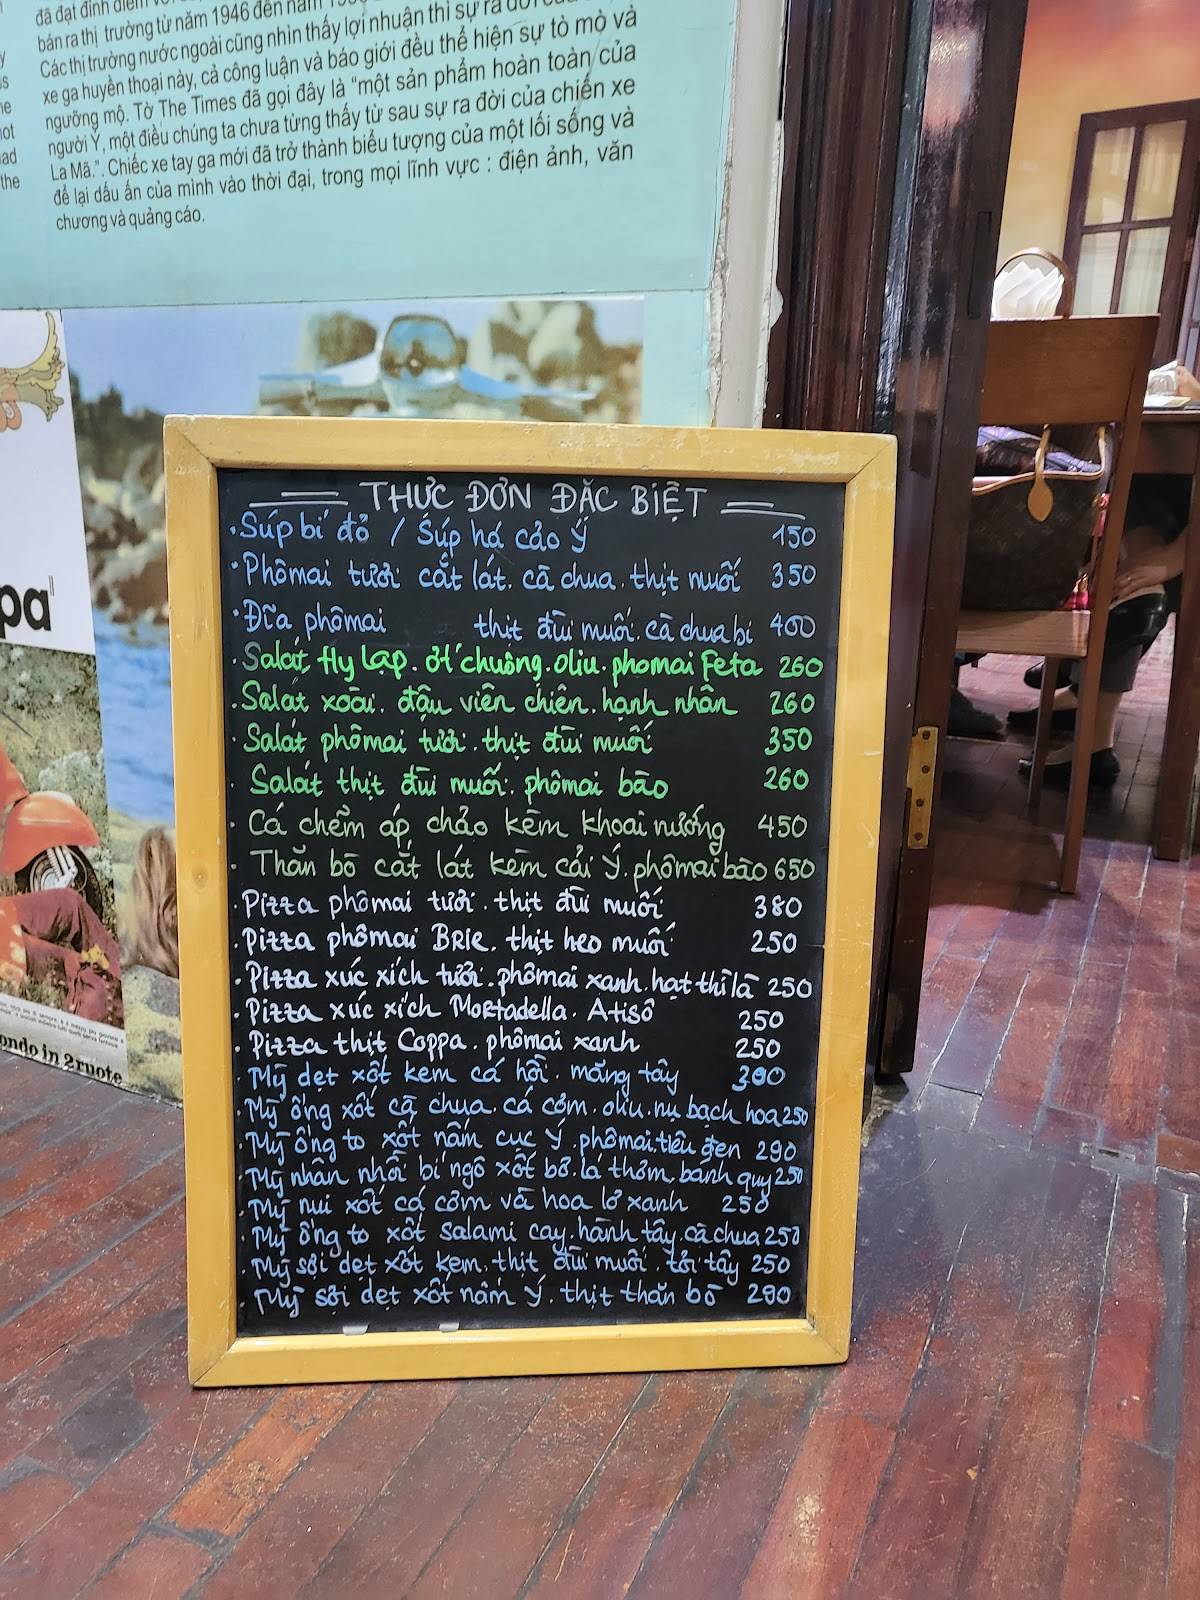 đã đạt đỉnh điểm
bán ra thị trường từ năm 1946 đến năm
Các thị trường nước ngoài cũng nhìn thấy lợi nhuận thì sự ra đời của
xe ga huyền thoại này, cả công luận và báo giới đều thể hiện sự tò mò và
ngưỡng mộ. Tờ The Times đã gọi đây là "một sản phẩm hoàn toàn của
người Ý, một điều chúng ta chưa từng thấy từ sau sự ra đời của chiến xe
La Mã.". Chiếc xe tay ga mới đã trở thành biểu tượng của một lối sống và
để lại dấu ấn của mình vào thời đại, trong mọi lĩnh vực : điện ảnh, văn
chương và quảng cáo.
the
pa
ondo in 2ruote
THỰC ĐƠN ĐẶC BIỆT
• Súp bí đỏ / Súp há cảo Ý 150
• Phômai tươi cắt lát. cà chua. thịt muối 350
• Đĩa phômai thịt đùi muối. cà chua bi 400
. Salát Hy Lạp. ớt chuông. oliu. phomai Feta 260
. Salat xoài. đậu viên chiên. hạnh nhân 260
. Salát phômai tươi. thịt đùi muối 350
. Salát thịt đùi muối. phômai bào 260
. Cá chẽm áp chảo kèm khoai nướng 450
. Thăn bò cắt lát kèm cải Ý. phômai bào 650
. Pizza phômai tươi. thịt đùi muối 380
. Pizza phômai BRIE. thịt heo muối 250
. Pizza xúc xích tươi. phômai xanh. hạt thì là 250
. Pizza xúc xích Mortadella. Atisô 250
. Pizza thịt Coppa. phômai xanh 250
. Mỳ dẹt xốt kem cá hồi. măng tây 300
. Mỳ ống xốt cà chua. cá cơm. oliu. nụ bạch hoa 250
. Mỳ ống to xốt nấm cục Ý. phômai. tiêu đen 290
. Mỳ nhân nhồi bí ngô xốt bơ. lá thơm. bánh quy 250
. Mỳ nui xốt cá cơm và hoa lơ xanh 250
. Mỳ ống to xốt salami cay. hành tây. cà chua 250
. Mỳ sợi dẹt xốt kem. thịt đùi muối. tỏi tây 250
. Mỳ sợi dẹt xốt nấm Ý. thịt thăn bò 290